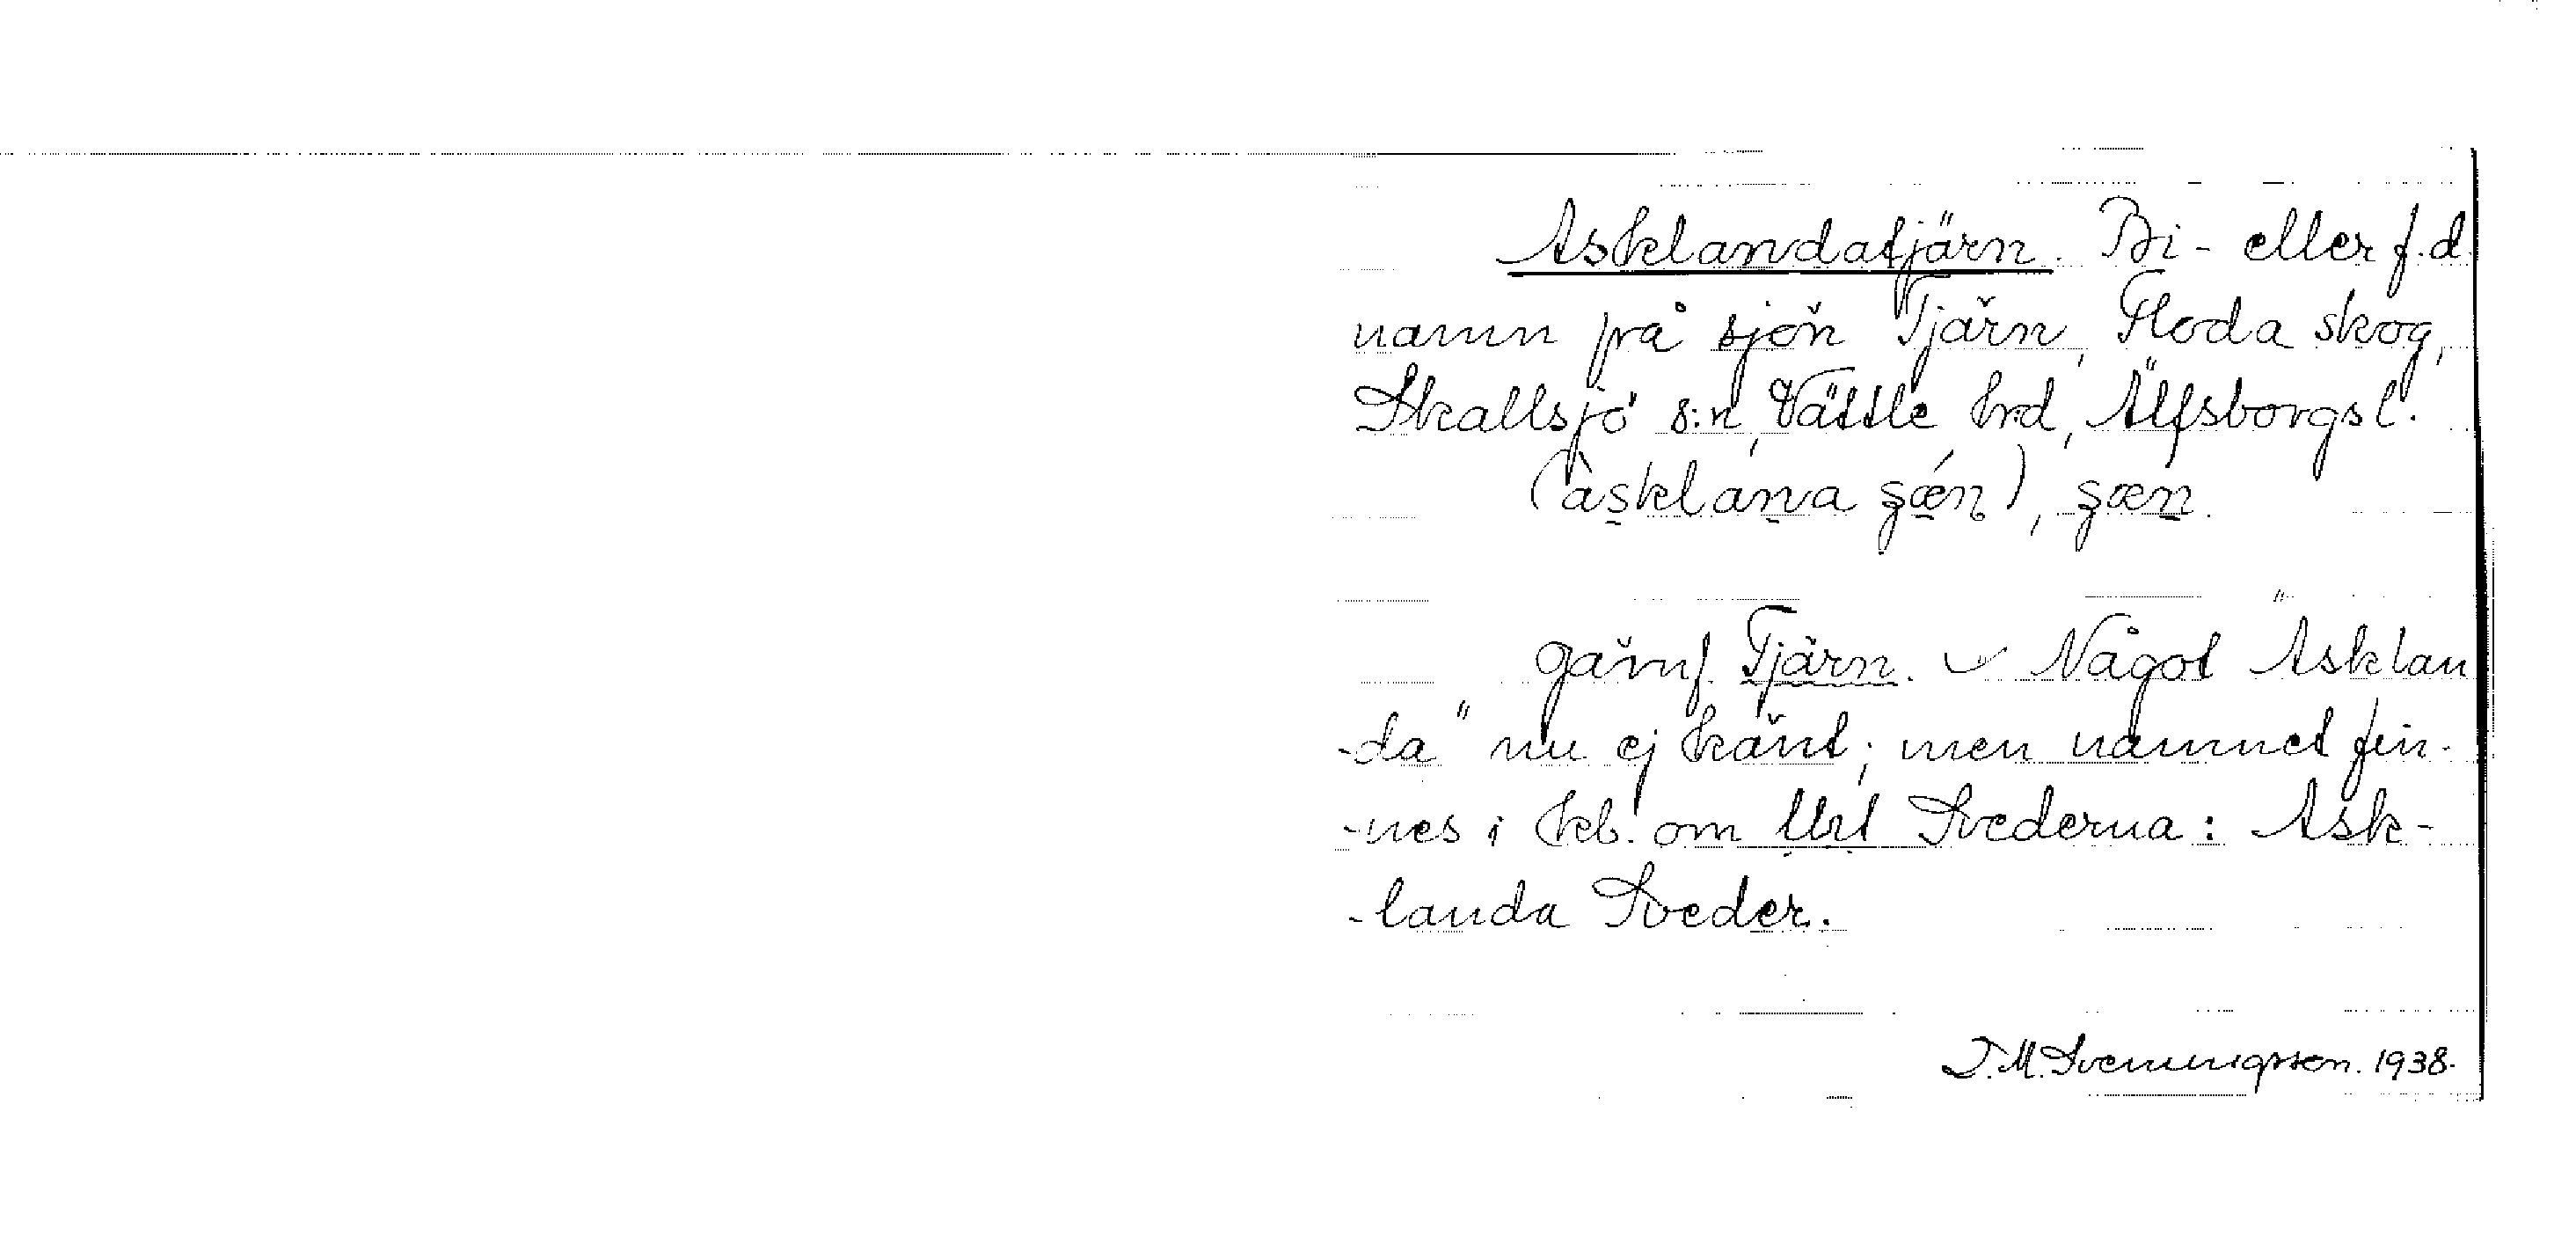 Asklandatjärn. Bi- eller f.d.
namn på sjön Tjärn, Floda skog,
Skallsjö s:n, Vättle hrd, Älfsborgs l.
jämf. Tjärn. Något "Asklan
-da" nu ej känt; men namnet fin-
-nes i kb. om Svederna: Ask-
-landa Sveder.
D.M. Svenningsson. 1938.